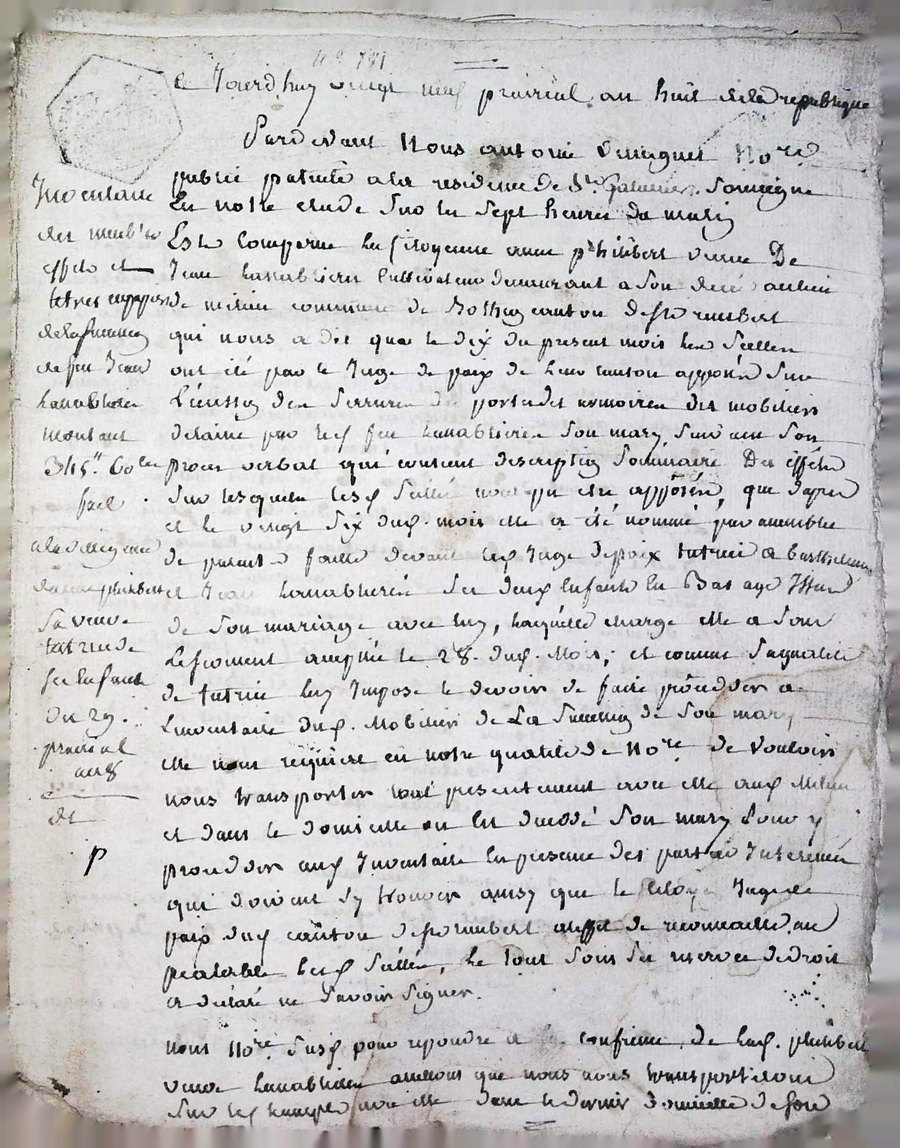 Jourd'huy vingt neuf prairial an huit de la republique
Pardevant Nous antoine Nore
public patenté a la residence de St. Galmier, Soussigné
En notre etude Sur les Sept heures du matin
Est Comparue La Citoyenne anne philibert veuve De
Jean cultivateur demeurant a Son deces au lieu
de commune de canton de
qui nous a dit que le dix du present mois Les Scellés
ont été par le Juge de paix de leur canton apposés Sur
des Serrures des portes des armoires des mobiliers
delaissé par led. feu Son mary, Suivant Son
proces verbal qui contient description Sommaire Des effets
Sur lesquels lesd. Scellés nont pu etre apposés, que depuis
et le vingt Six dud. mois elle a été nommé par assemblée
de parents de famille devant led. Juge de paix tutrice a
et Jean Ses deux Enfants En Bas age Issus
de Son mariage avec luy, Laquelle charge elle a Sous
Serment accepté le 28. dud. Mois; et comme Sa qualité
de tutrice luy Impose le devoir de faire proceder a
Linventaire dud. Mobilier de La Succession de Son mary
elle nous requiere en notre qualité de Nore de Vouloir
nous transporter tout presentement avec elle aud.
et dans le domicille ou Est decedé Son mary Pour y
proceder aud. Inventaire En presence des parties Interessées
qui doivent Sy trouver ainsy que le Citoyen Juge de
paix dud. canton de aleffet de reconnaitre au
prealable lesd. Scellés, Le Tout Sous Ses reserves de droit
et a declaré ne Savoir Signer.
nous Nore Susd. pour repondre a la confiance de Lad. philibert
veuve que nous nous transporterons
Sur le champ avec elle dans le dernier domicille de
Inventaire
des meubles
effets et
titres
de la succession
de feu Jean
montant
345.ll 60
fait
a la
de anne philibert
Sa veuve
tutrice de
Ses Enfants
Du 29.
prairial
an 8